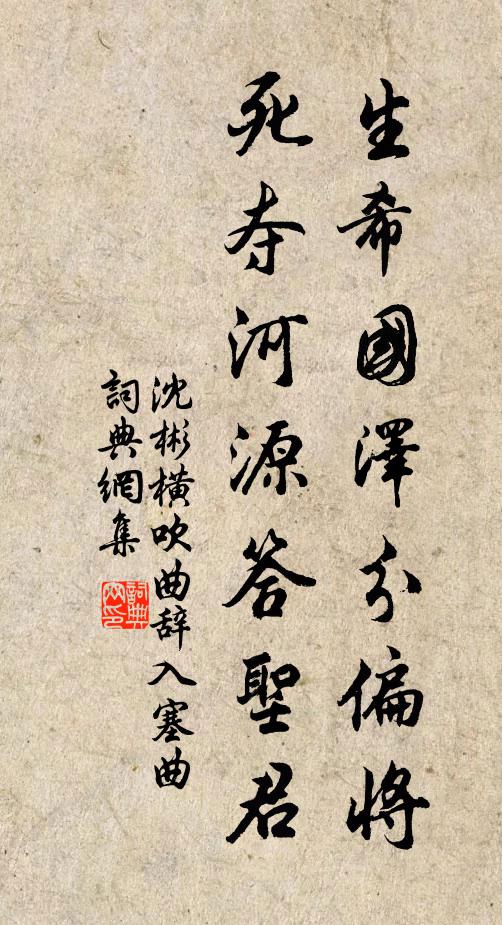 生希國澤分偏將
死夺河源答聖君
沈彬橫吹曲辞入塞曲
詞典網集
詞典
网印